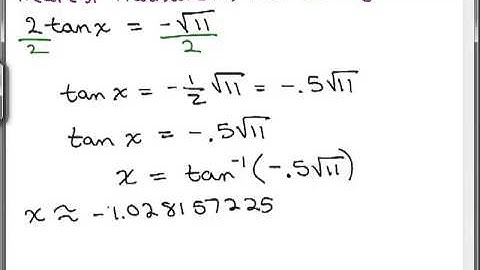 2 tan x = -√11
2 2
tan x = -1/2 √11 = -.5√11
tan x = -.5√11
x = tan⁻¹(-.5√11)
x ≈ -1.028157225